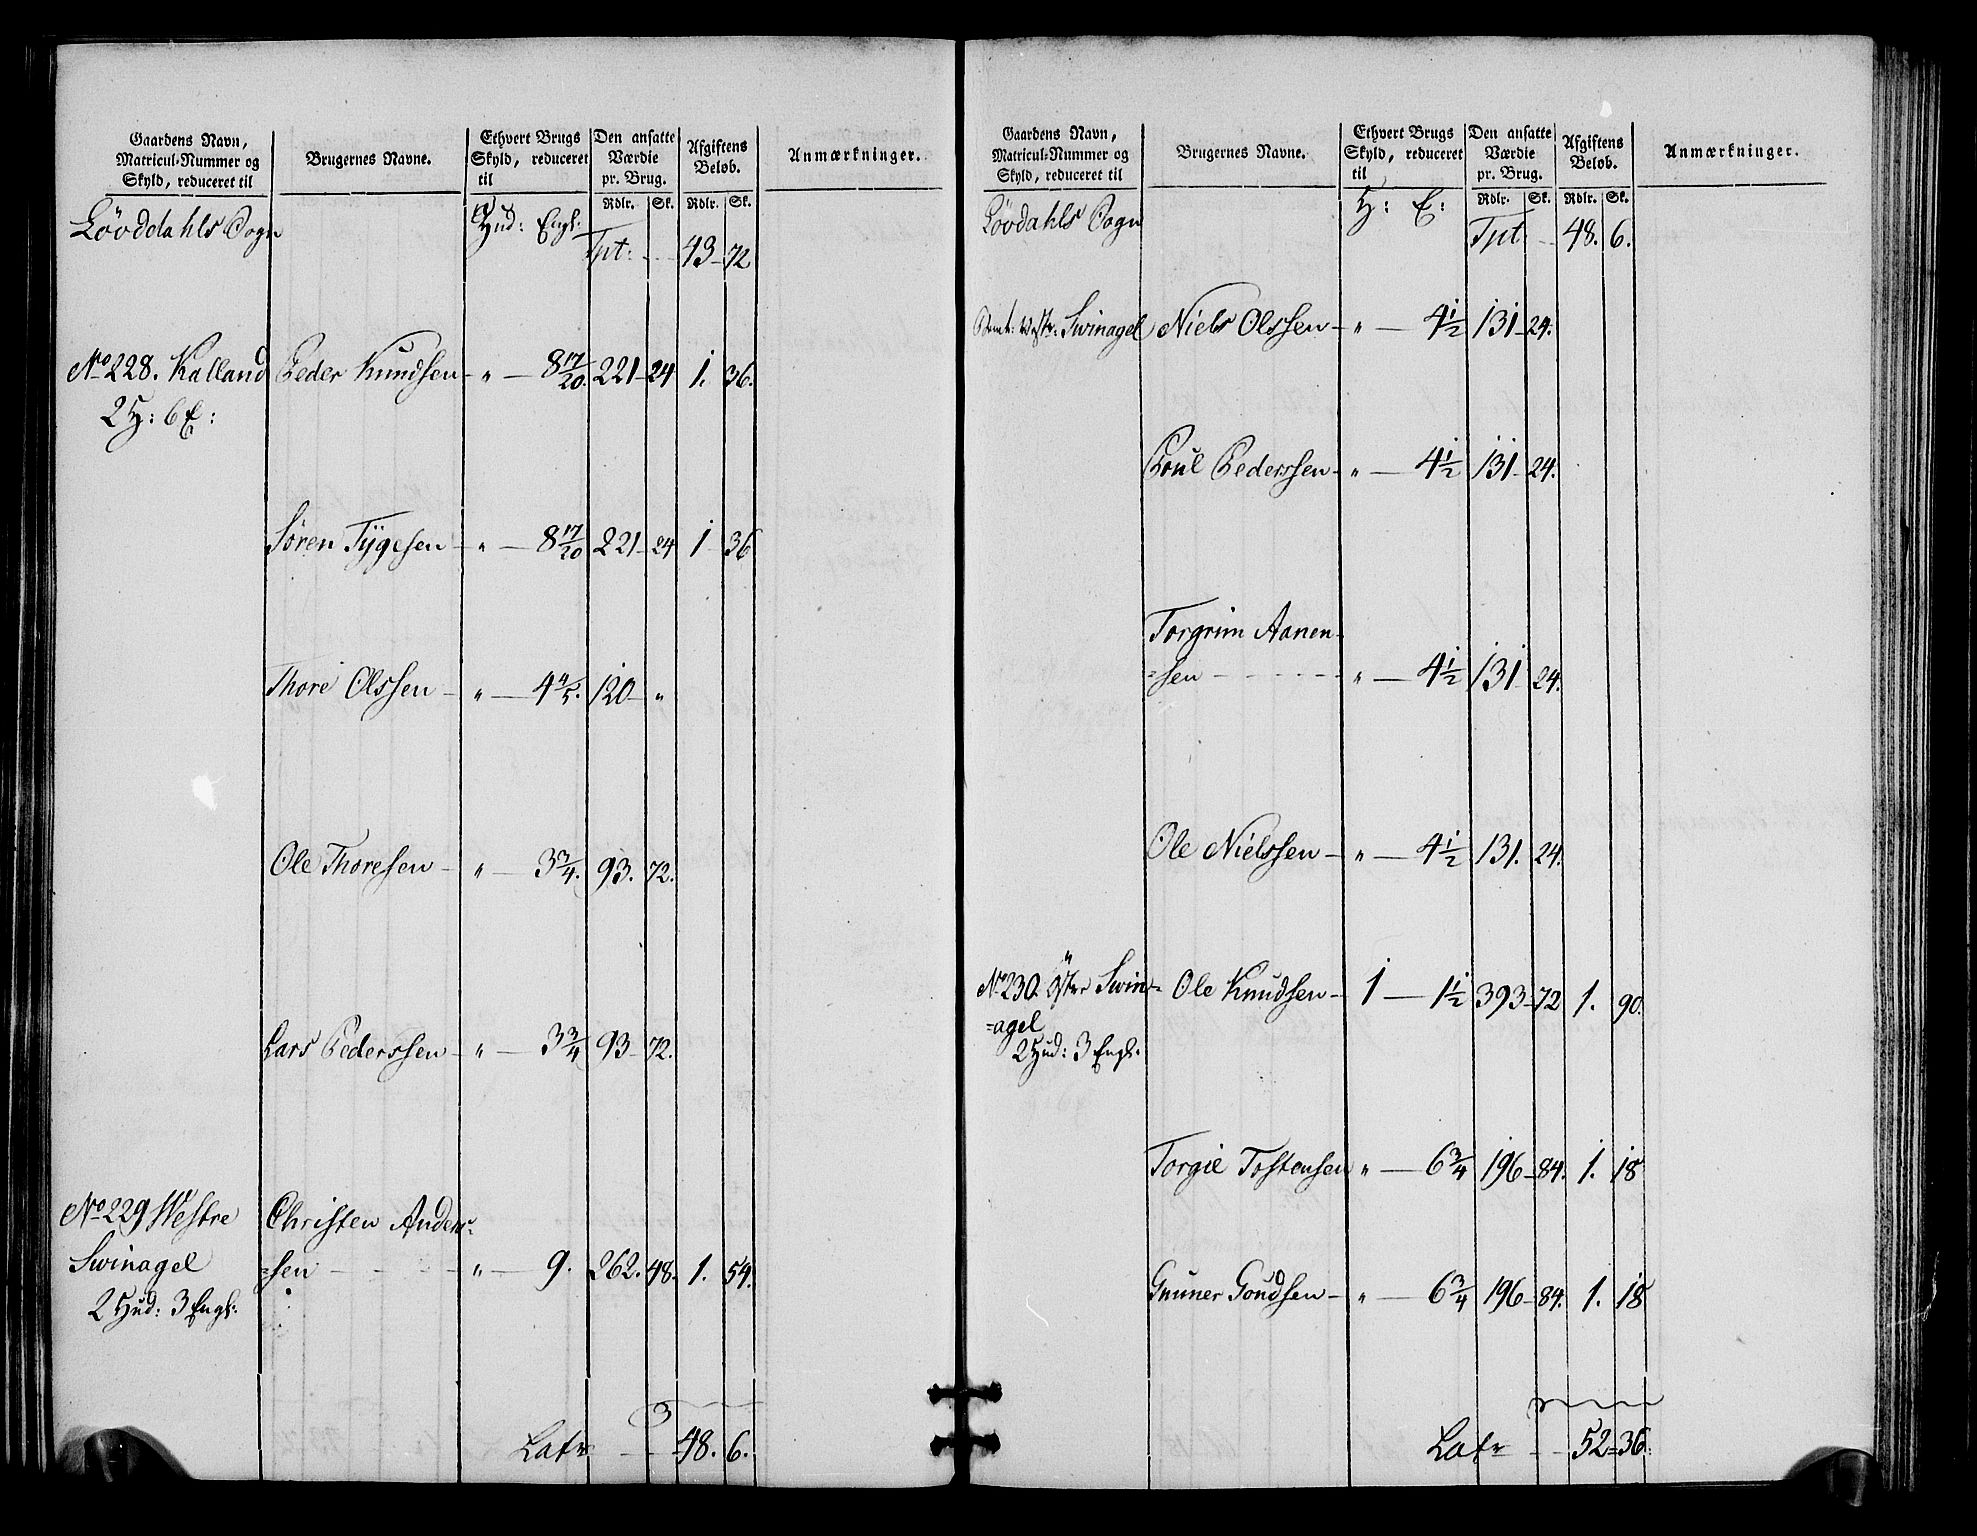 Gaardens Navn, Matricul-Nummer og Skyld, reduceret til | Brugernes Navne. | Ethvert Brugs Skyld, reduceret til | Den ansatte Værdie pr. Brug. | Afgiftens Beløb. | Anmærkninger.
Rdlr. | Sk. | Rdlr. | Sk.
Løvddahls Sogn | Hud: Engl: | Tpt: - - 43 - 72
No 228. Kalland | Peder Knudsen - „ — 8 17/20. 221 - 24 1. 36.
2 H: 6 E:
Søren Tÿgesen - „ — 8 17/20 221 - 24 1 - 36
Thore Olssen - „ — 4 4/5. 120 - „
Ole Thoresen - „ — 3 3/4. 93. 72.
Lars Pederssen - „ — 3 3/4 93 - 72.
No 229 Westre | Christen Anders-
Swinagel | =sen - - - - „ — 9. 262. 48. 1. 54.
2 Hud: 3 Engl:
Latr - - 48. 6.
Gaardens Navn, Matricul-Nummer og Skyld, reduceret til | Brugernes Navne. | Ethvert Brugs Skyld, reduceret til | Den ansatte Værdie pr. Brug. | Afgiftens Beløb. | Anmærkninger.
Rdlr. | Sk. | Rdlr. | Sk.
Løvdahls Sogn | H: E: | Tpt - - 48. 6.
Swinagel | Niels Olssen - „ — 4 1/2 131 - 24.
Poul Pederssen - „ — 4 1/2 131 - 24.
Torgrim Aanen-
=sen - - - - „ — 4 1/2 131 - 24.
Ole Nielssen - „ — 4 1/2 131. 24.
No 230. Öster Swin= | Ole Knudsen - 1 — 1 1/2 393 - 72 1. 90.
=agel
2 Hud: 3 Engl:
Torgie Tostensen „ — 6 3/4 196 - 84. 1. 18
Gunner Goudsen - „ — 6 3/4 196 - 84. 1. 18
Latr - - 52 = 36.